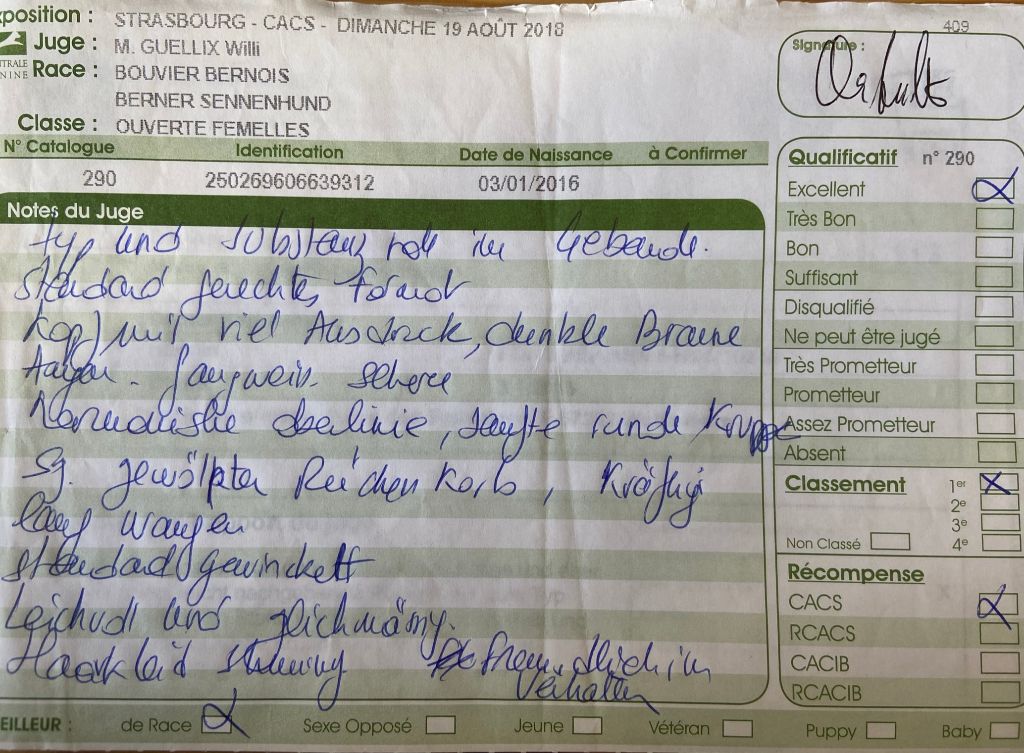 xposition : STRASBOURG - CACS - DIMANCHE 19 AOÛT 2018
409
Juge : M. GUELLIX Willi
Signature :
NTRALE
NINE
Race : BOUVIER BERNOIS
BERNER SENNENHUND
Classe : OUVERTE FEMELLES
N° Catalogue Identification Date de Naissance à Confirmer
290 250269606639312 03/01/2016
Notes du Juge
Typ und Substanz im Gebäude.
Standard gerechtes Format
Kopf mit viel Ausdruck, dunkle Braune
Augen. Schere
Oberlinie, sanfte runde Kruppe
Sg. gewölpter Korb, Kräftig
lang
Standard gewinckelt
und gleichmäßig.
Haarkleid
Verhalten
Qualificatif n° 290
Excellent
Très Bon
Bon
Suffisant
Disqualifié
Ne peut être jugé
Très Prometteur
Prometteur
Assez Prometteur
Absent
Classement 1er
2e
3e
Non Classé 4e
Récompense
CACS
RCACS
CACIB
RCACIB
EILLEUR : de Race Sexe Opposé Jeune Vétéran Puppy Baby